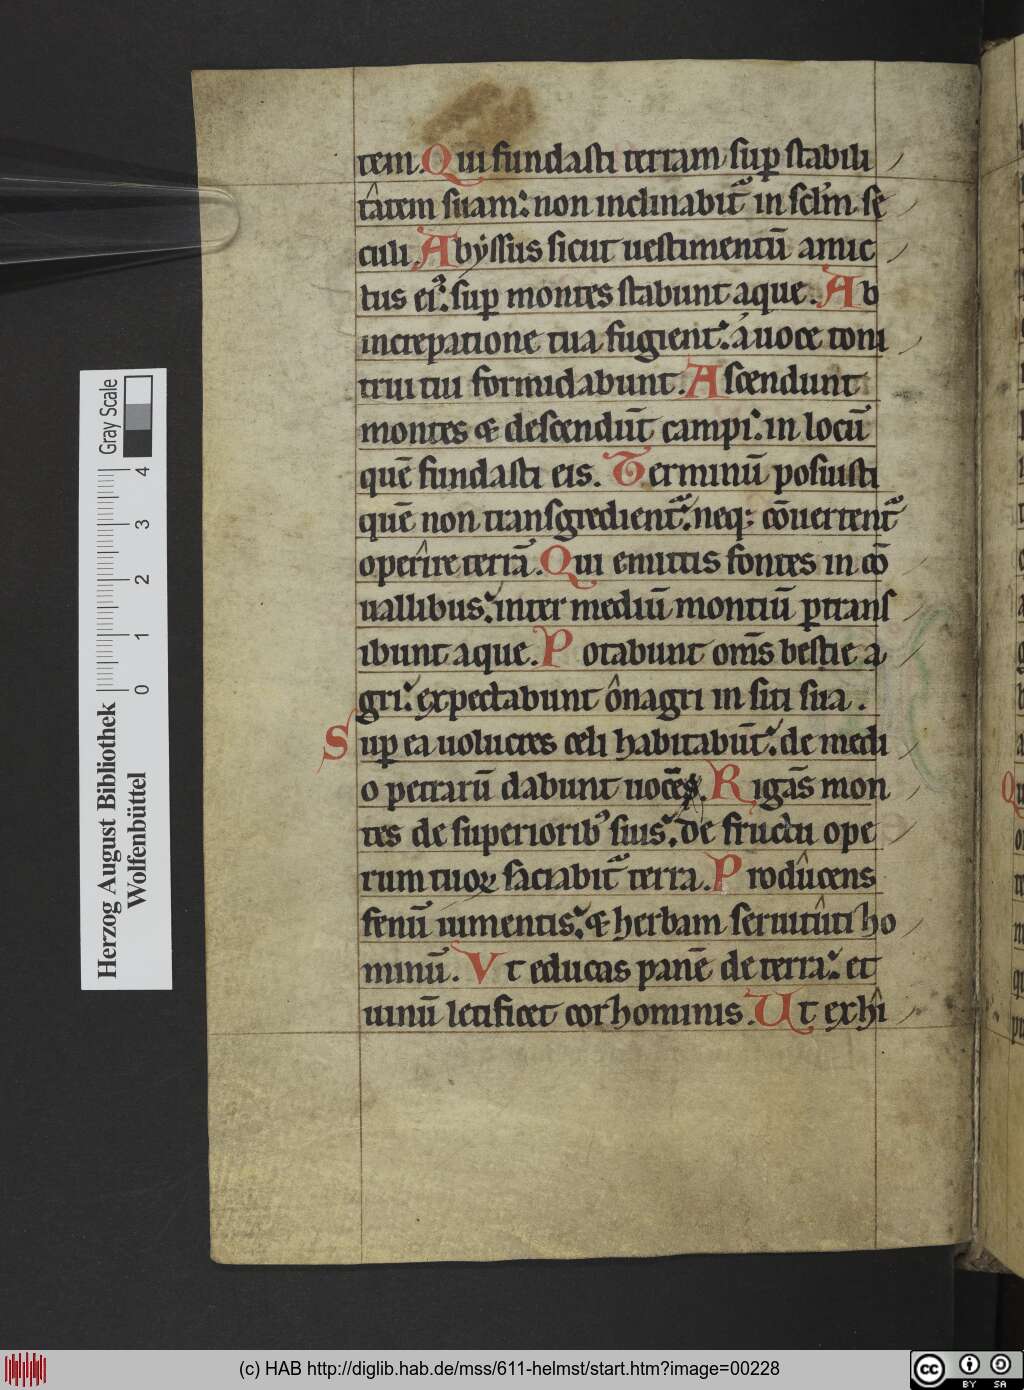 tem. Qui fundasti terram sup̱ stabili
tâtem suam: non inclinabit᷑ in sclm̄ se
culi. Abyssus sicut uestimentū amic
tus ei᷒: sup̱ montes stabunt aque. Ab
increpatione tua fugient: á uoce toni
trui tui formidabunt. Ascendunt
montes & descendūt campi: in locū
quē fundasti eis. Terminū posuisti
quē non transgredient᷑: neq; cōuertent᷑
operîre terrā. Qui emittis fontes in cō
uallibus: inter mediū montiū ꝑtrans
ibunt aque. Potabunt om̄s bestie a
gri: expectabunt ônagri in siti sua.
Sup̱ ea uolucres celi habitabūt: de medi
o petrarū dabunt uocēs. Rigās mon
tes de superiorib᷒ suis: de fructu ope
rum tuoꝝ saciabit᷑ terra. Prodûcens
fenū iumentis: & herbam seruitûti ho
minū. Vt educas panē de terra: et
uinū letificet cor hominis. Ut exhî
Herzog August Bibliothek
Wolfenbüttel
0 1 2 3 4
Gray Scale
(c) HAB http://diglib.hab.de/mss/611-helmst/start.htm?image=00228
cc BY SA